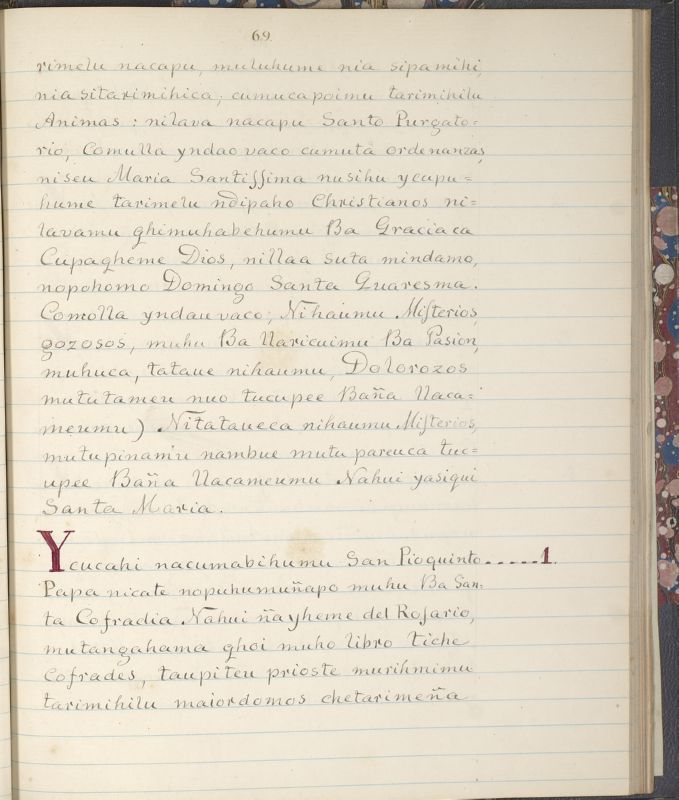 69.
rimelu nacapu, muluhume nia sipamihi,
nia sitarimihica; cumucapoimu tarimihilu
Animas: nilava nacapu Santo Purgato=
rio, Comulla yndaovaco cumuta ordenanzas,
niseu Maria Santiſsima nusihu ycupu=
hume tarimelu ndipaho Christianos ni=
lavamu ghimuhabehumu Ba Gracia ca
Cupagheme Dios, nillaa suta mindamo,
nopohomo Domingo Santa Quaresma.
Comolla yndauvaco; Nihaumu Miſterios,
gozosos, muhu Ba Uaricuimu Ba Pasion,
muhuca, tataue nihaumu, Dolorozos
mututameu nuo tucupee Baña Uaca=
meumu) Nitataueca nihaumu Miſterios,
mutupinamu nambue mutu pareuca tuc=
upee Baña Uacameumu Nahui yasiqui
Santa Maria.
Ycucahi nacumabihumu San Pioquinto......1.
Papa nicate nopuhumuñapo muhu Ba San=
ta Cofradia Nahui ñayheme del Roſario,
mutangahama ghoi muho libro tiche
Cofrades, taupiteu prioste murihmimu
tarimihilu maiordomos chetarimeña